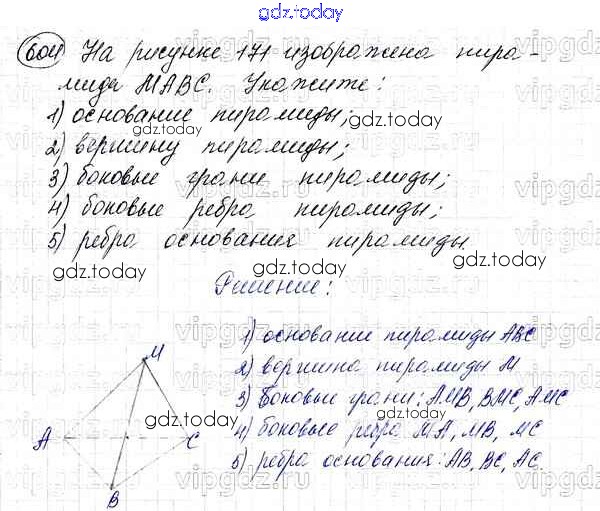 gdz.today
604 На рисунке 171 изображена пира-
мида МАВС. Укажите:
1) основание пирамиды;
gdz.today
2) вершину пирамиды;
3) боковые грани пирамиды;
4) боковые ребра пирамиды;
5) ребра основания пирамиды.
gdz.today gdz.today
Решение:
1) основание пирамиды АВС
2) вершина пирамиды М
3) Боковые грани: АМВ, ВМС, АМС
4) боковые ребра МА, МВ, МС
5) ребра основания: АВ, ВС, АС.
М
gdz.today gdz.today
А С
gdz.today
В
gdz.today
vipgdz.ru